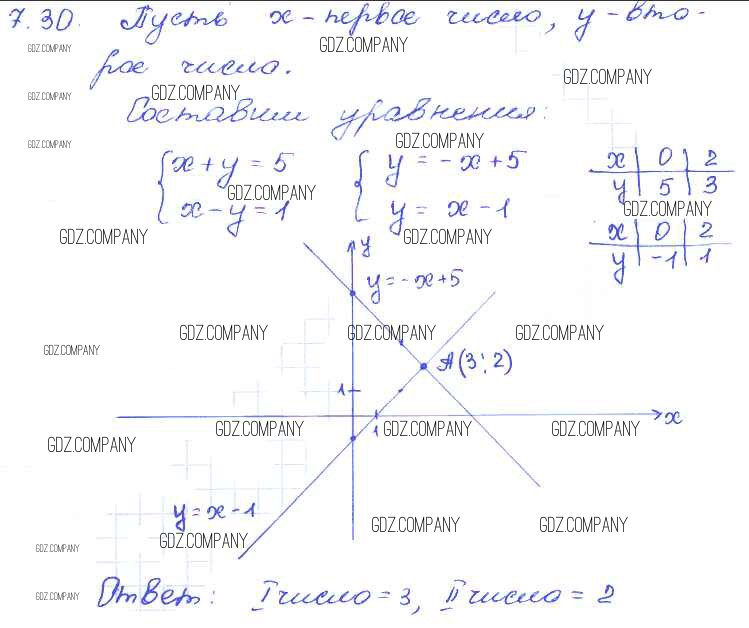 7.30. Пусть x - первое число, y - вто-
GDZ.COMPANY GDZ.COMPANY
рое число. GDZ.COMPANY
GDZ.COMPANY GDZ.COMPANY
Составим уравнения:
GDZ.COMPANY GDZ.COMPANY
{x + y = 5 {y = -x + 5 x | 0 | 2
GDZ.COMPANY y | 5 | 3
x - y = 1 y = x - 1 GDZ.COMPANY
GDZ.COMPANY GDZ.COMPANY x | 0 | 2
y y | -1 | 1
y = -x + 5
GDZ.COMPANY GDZ.COMPANY GDZ.COMPANY
GDZ.COMPANY A(3; 2)
1
x
GDZ.COMPANY GDZ.COMPANY 1 GDZ.COMPANY GDZ.COMPANY
y = x - 1 GDZ.COMPANY GDZ.COMPANY
GDZ.COMPANY GDZ.COMPANY
GDZ.COMPANY Ответ: I число = 3, II число = 2